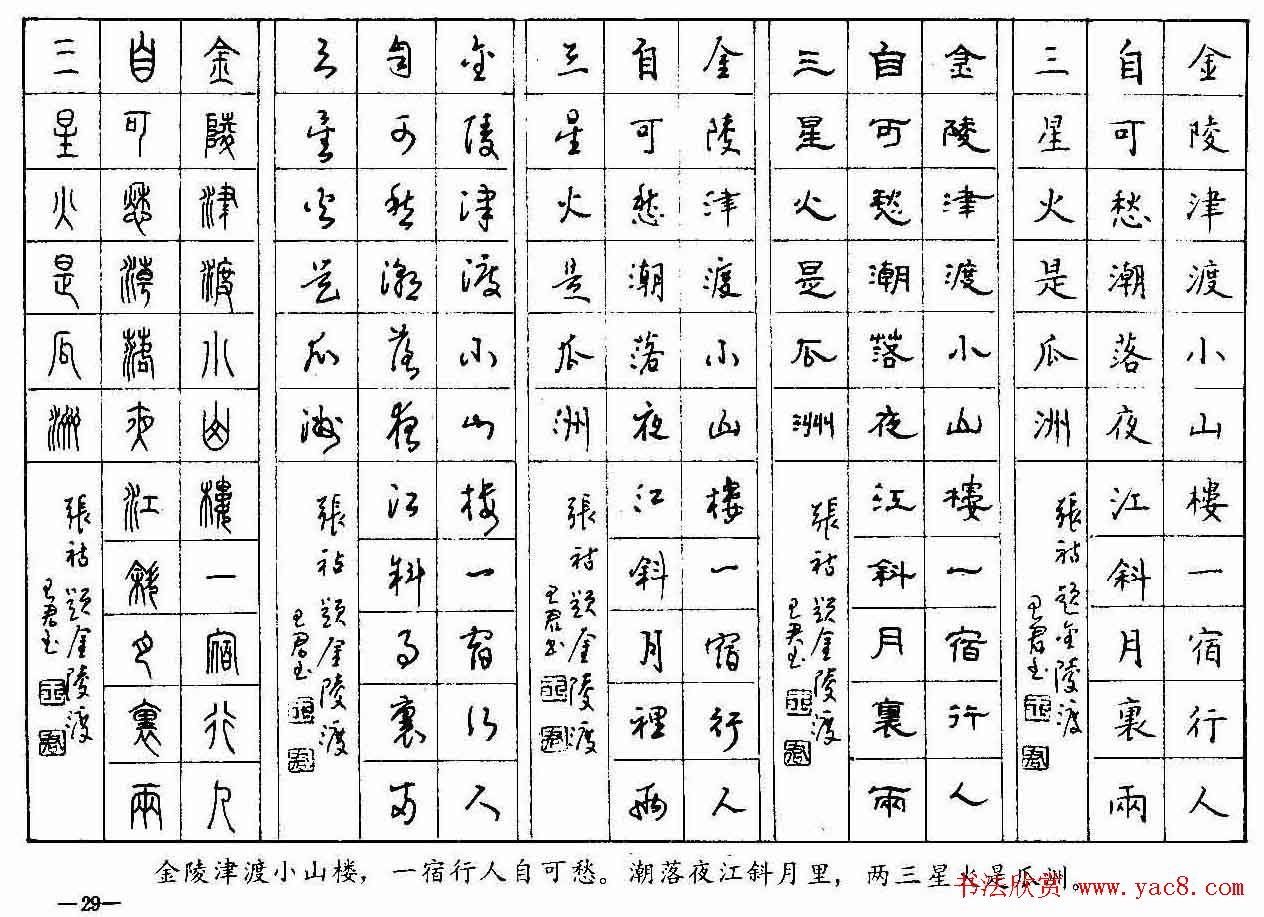 金陵津渡小山樓一宿行人
自可愁潮落夜江斜月裏兩
三星火是瓜洲
張祜題金陵渡
王君书
金陵津渡小山樓一宿行人
自可愁潮落夜江斜月裏兩
三星火是瓜洲
張祜題金陵渡
王君书
金陵津渡小山樓一宿行人
自可愁潮落夜江斜月裡兩
三星火是瓜洲
張祜題金陵渡
王君书
金陵津渡小山樓一宿行人
自可愁潮落夜江斜月裏兩
三星火是瓜洲
張祜題金陵渡
王君书
金陵津渡小山樓一宿行人
自可愁潮落夜江斜月裏兩
三星火是瓜洲
張祜題金陵渡
王君书
金陵津渡小山楼，一宿行人自可愁。潮落夜江斜月里，两三星火是瓜洲。
书法欣赏 www.yac8.com
—29—